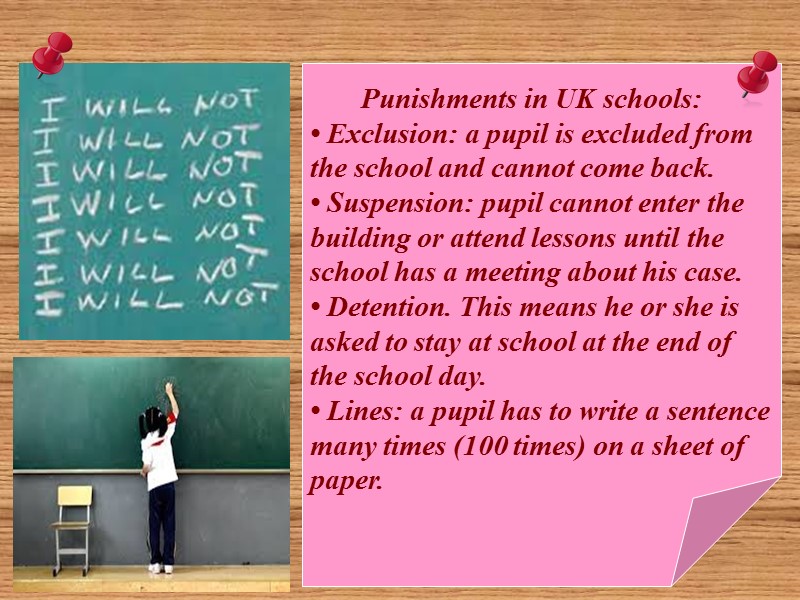 I WILL NOT
I WILL NOT
I WILL NOT
I WILL NOT
I WILL NOT
I WILL NOT
I WILL NOT
Punishments in UK schools:
• Exclusion: a pupil is excluded from
the school and cannot come back.
• Suspension: pupil cannot enter the
building or attend lessons until the
school has a meeting about his case.
• Detention. This means he or she is
asked to stay at school at the end of
the school day.
• Lines: a pupil has to write a sentence
many times (100 times) on a sheet of
paper.